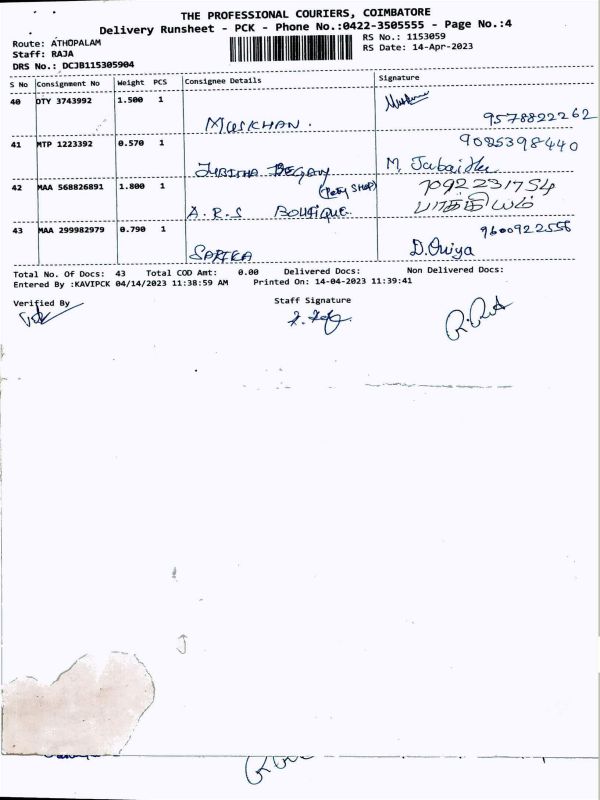 THE PROFESSIONAL COURIERS, COIMBATORE
Delivery Runsheet - PCK - Phone No.:0422-3505555 - Page No.:4
Route: ATHOPALAM
RS No.: 1153059
Staff: RAJA
RS Date: 14-Apr-2023
DRS No.: DCJB115305904
S No Consignment No Weight PCS Consignee Details Signature
40 DTY 3743992 1.500 1
MUSKHAN. 9578822262
41 MTP 1223392 0.570 1 9025398440
BEGAM M.
42 MAA 568826891 1.800 1 (Petty SHOP) 7092231754
A.R.S BOUTIQUE பாத்திமா
43 MAA 299982979 0.790 1 9600922556
SARIKA D.
Total No. Of Docs: 43 Total COD Amt: 0.00 Delivered Docs: Non Delivered Docs:
Entered By :KAVIPCK 04/14/2023 11:38:59 AM Printed On: 14-04-2023 11:39:41
Verified By Staff Signature